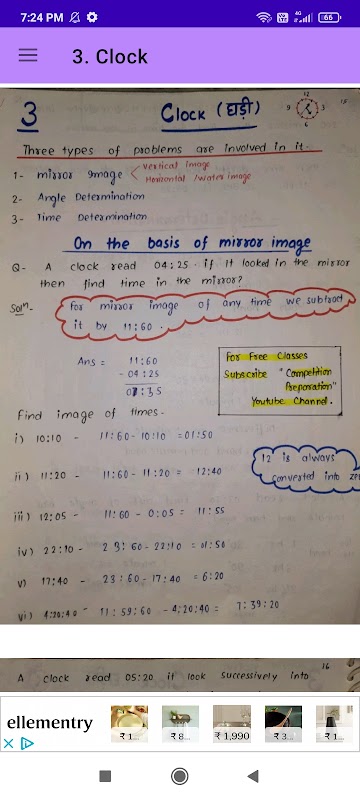 7:24 PM
4G
66
3. Clock
3
Clock (घड़ी)
12
9
3
6
15
Three types of problems are involved in it.
1- mirror Image
Vertical image
Horizontal /water image
2- Angle Determination
3- Time Determination
On the basis of mirror image
Q- A clock read 04:25. if it looked in the mirror
then find time in the mirror?
Solⁿ-
For mirror image of any time we subtract
it by 11:60.
Ans = 11:60
- 04:25
07:35
For Free Classes
Subscribe "Competition
Preparation"
Youtube Channel.
Find image of times-
i) 10:10 - 11:60-10:10 =01:50
ii) 11:20 - 11:60-11:20 = 12:40
12 is always
converted into
iii) 12:05 - 11:60 - 0:05 = 11:55
iv) 22:10 - 23:60-22:10 = 01:50
v) 17:40 - 23:60-17:40 = 6:20
vi) 4:20:40 - 11:59:60 - 4:20:40 = 7:39:20
16
A clock read 05:20 if look successively into
ellementry
₹1...
₹8...
₹1,990
₹3...
₹1...